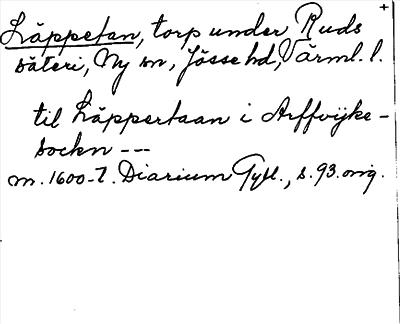 Läppetan, torp under Ruds +
säteri, Ny sn, Jösse hd, Värml. l.
til Läppertaan i Arffvijke-
sockn ---
m. 1600-t. Diarium Gyll., s. 93. orig.